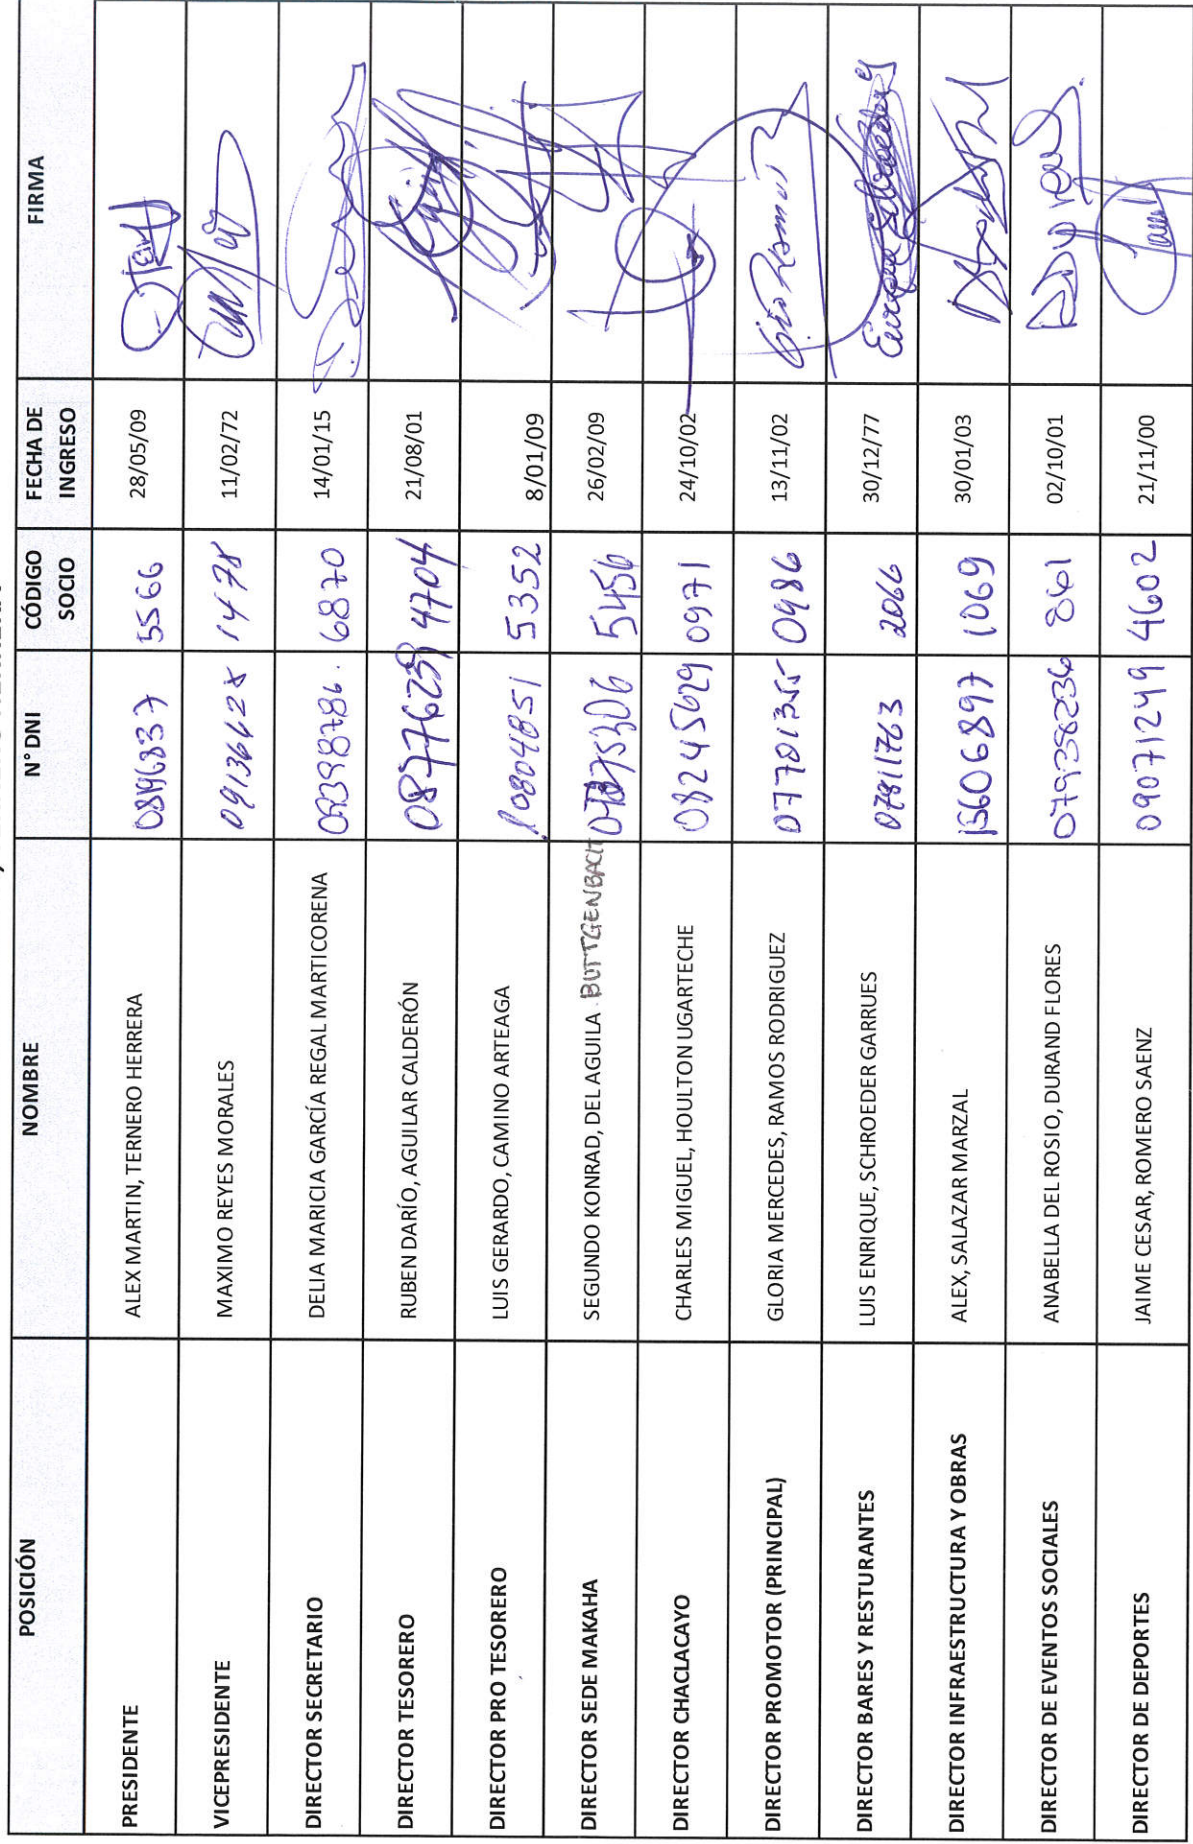 POSICIÓN NOMBRE N° DNI CÓDIGO SOCIO FECHA DE INGRESO FIRMA
PRESIDENTE ALEX MARTIN, TERNERO HERRERA 5566 28/05/09
VICEPRESIDENTE MAXIMO REYES MORALES 09136628 1478 11/02/72
DIRECTOR SECRETARIO DELIA MARICIA GARCÍA REGAL MARTICORENA 09398786. 6870 14/01/15
DIRECTOR TESORERO RUBEN DARÍO, AGUILAR CALDERÓN 4704 21/08/01
DIRECTOR PRO TESORERO LUIS GERARDO, CAMINO ARTEAGA 10804851 5352 8/01/09
DIRECTOR SEDE MAKAHA SEGUNDO KONRAD, DEL AGUILA BUTTGENBACH 5456 26/02/09
DIRECTOR CHACLACAYO CHARLES MIGUEL, HOULTON UGARTECHE 08245629 0971 24/10/02
DIRECTOR PROMOTOR (PRINCIPAL) GLORIA MERCEDES, RAMOS RODRIGUEZ 07701355 0986 13/11/02
DIRECTOR BARES Y RESTURANTES LUIS ENRIQUE, SCHROEDER GARRUES 07811763 2066 30/12/77
DIRECTOR INFRAESTRUCTURA Y OBRAS ALEX, SALAZAR MARZAL 15606897 1069 30/01/03
DIRECTOR DE EVENTOS SOCIALES ANABELLA DEL ROSIO, DURAND FLORES 07938236 861 02/10/01
DIRECTOR DE DEPORTES JAIME CESAR, ROMERO SAENZ 09071249 4602 21/11/00